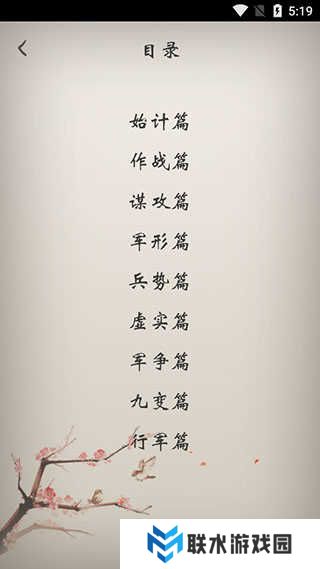 5:19
目录
始计篇
作战篇
谋攻篇
军形篇
兵势篇
虚实篇
军争篇
九变篇
行军篇
联水游戏园